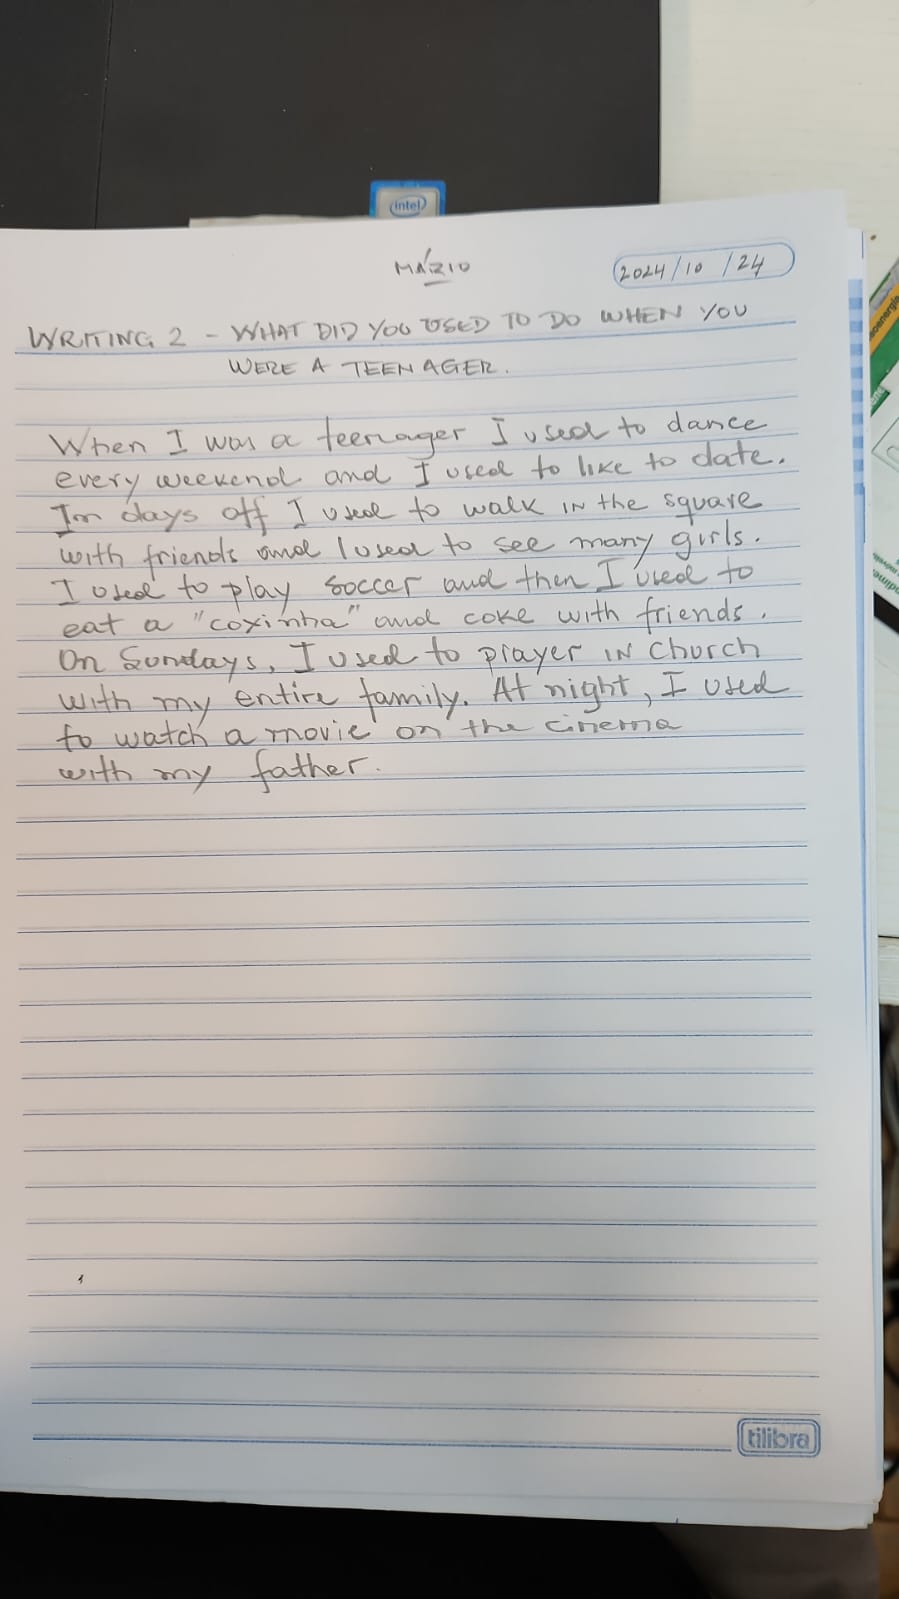 intel
MÁRIO
2024/10/24
WRITING 2 - WHAT DID YOU USED TO DO WHEN YOU
WERE A TEENAGER.
When I was a teenager I used to dance
every weekend and I used to like to date.
In days off I used to walk in the square
with friends and I used to see many girls.
I used to play soccer and then I used to
eat a "coxinha" and coke with friends.
On Sundays, I used to prayer in church
with my entire family. At night, I used
to watch a movie on the cinema
with my father.
tilibra